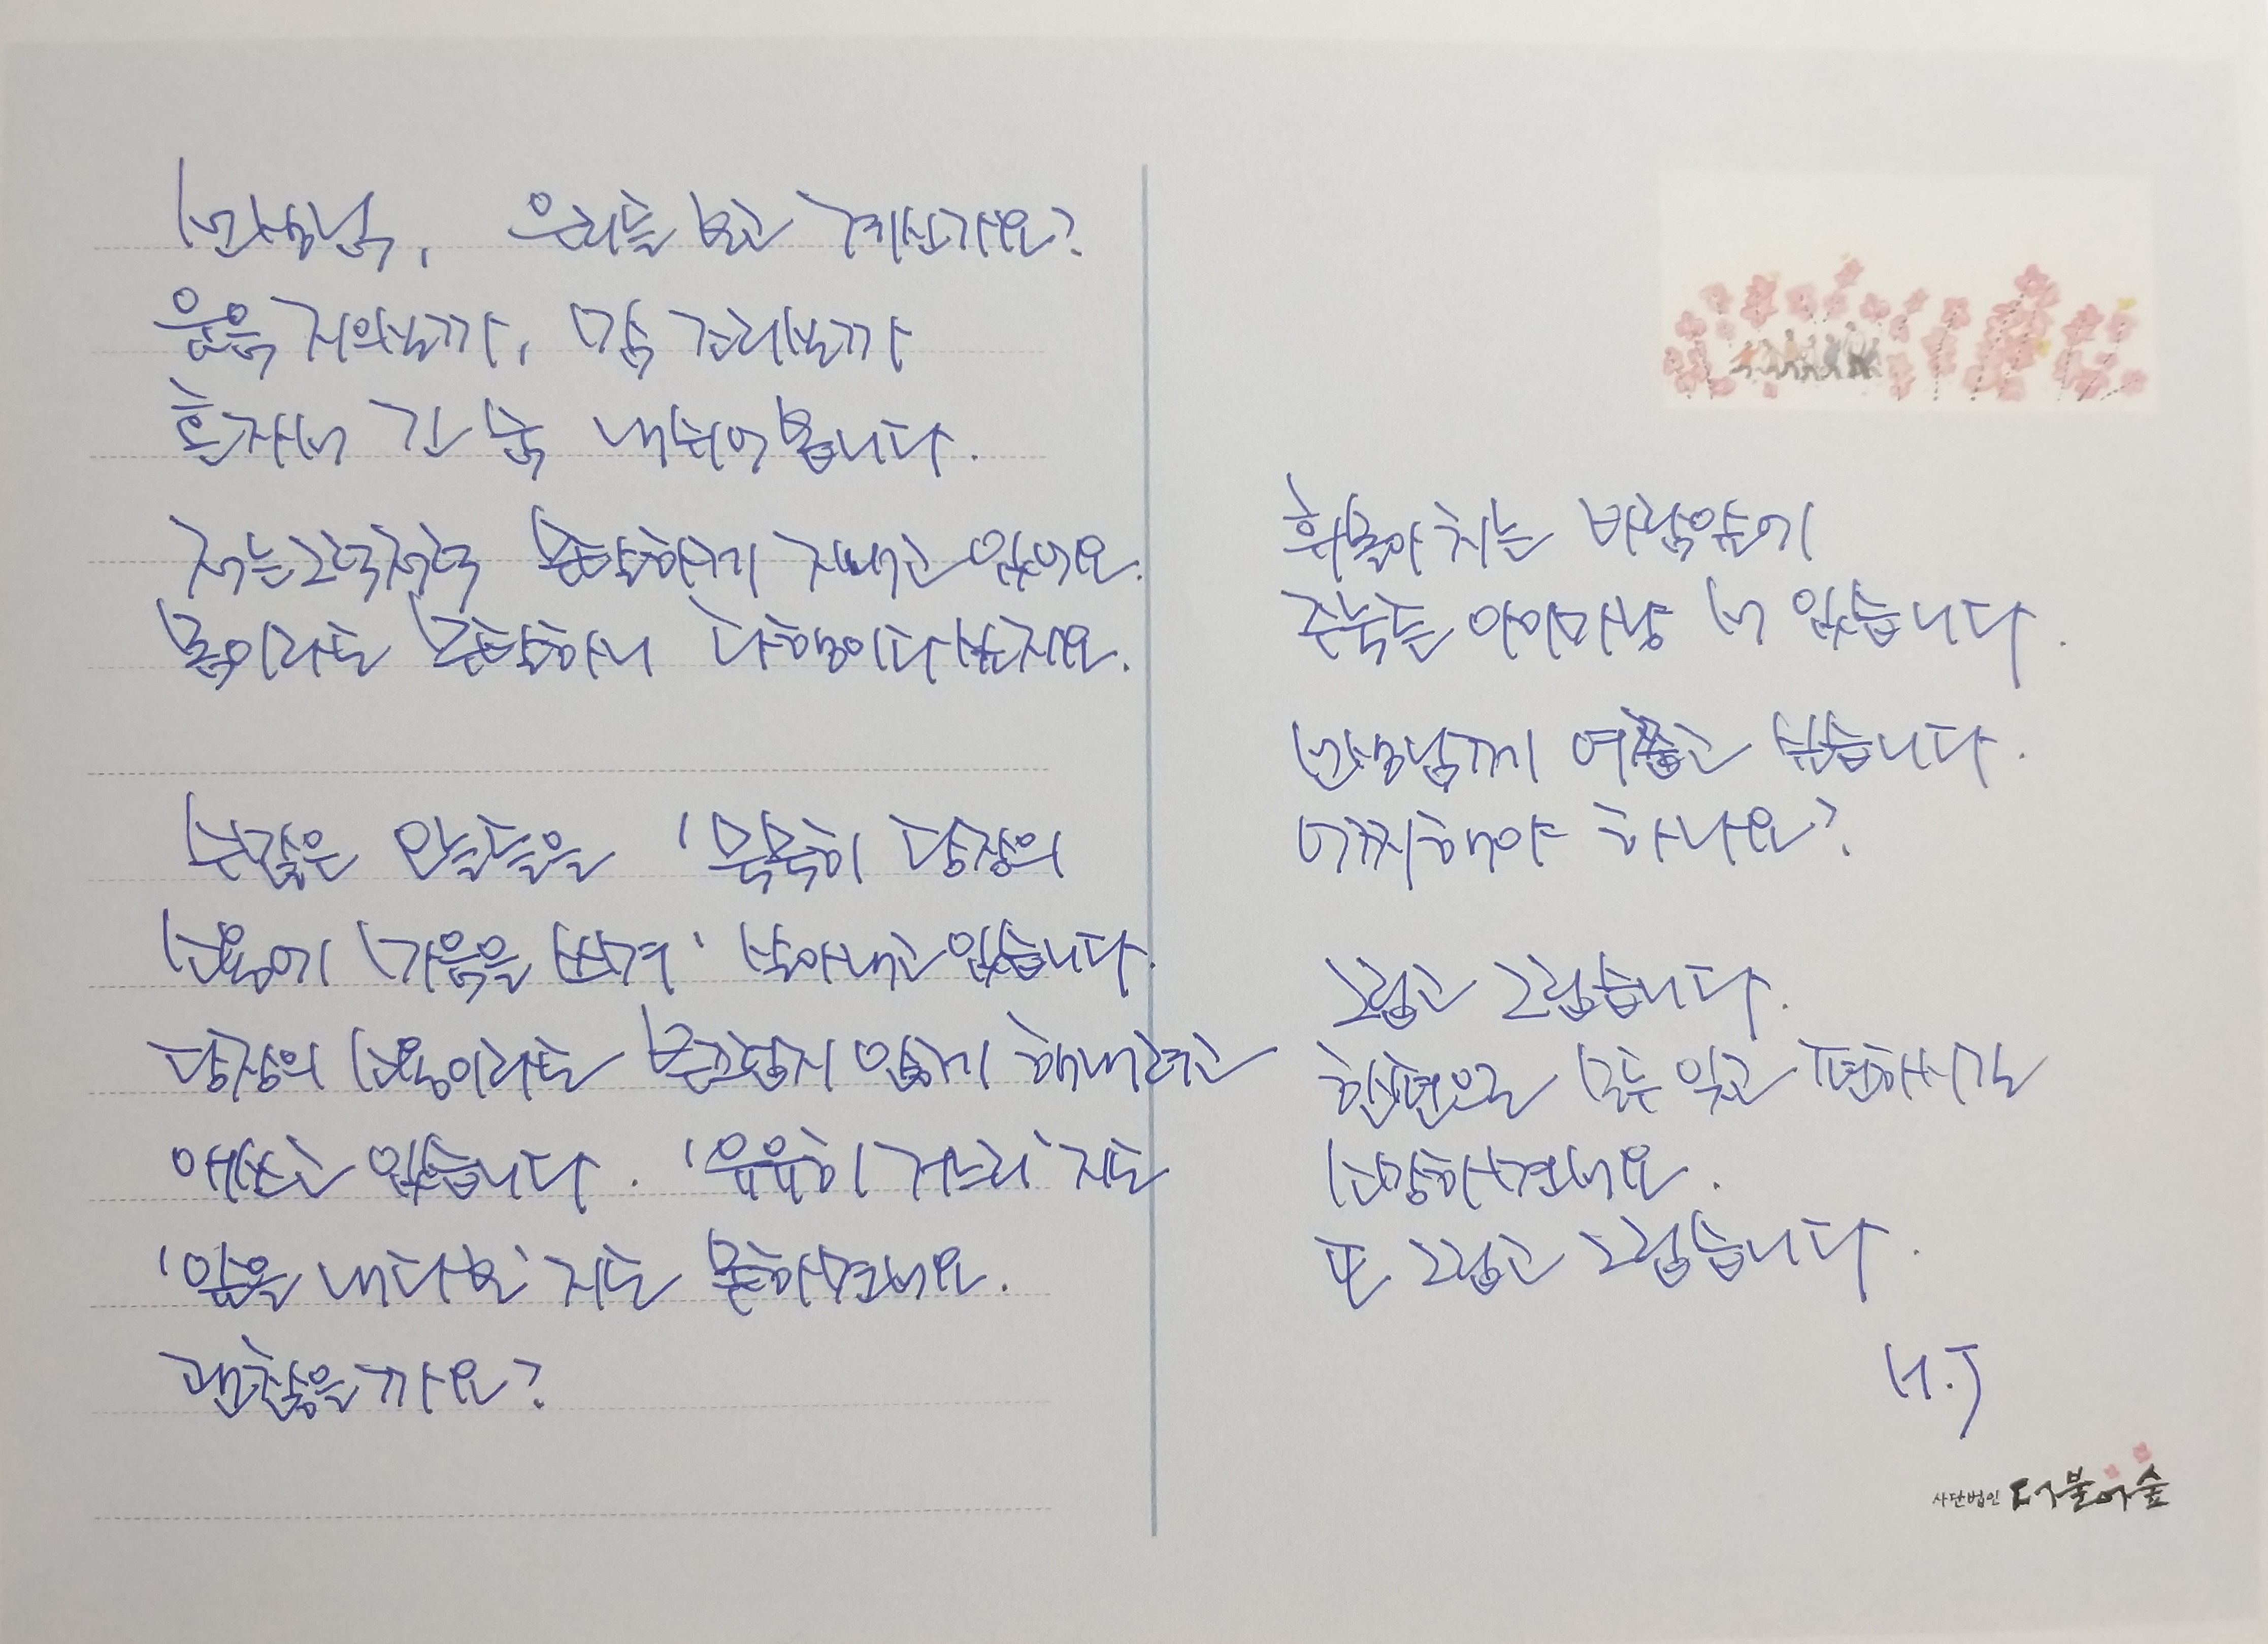 선생님, 우리를 보고 계신가요?
웃음 지으실까, 맘 조리실까
혼자서 긴 숨 내쉬어 봅니다.
저는 그럭저럭 무탈하게 지내고 있어요.
몸이라도 무탈하니 다행이다 싶지요.
수많은 일들을 '묵묵히 당장의
소용에 마음을 뺏겨' 살아내고 있습니다.
당장의 소용이라도 부끄럽지 않게 해내려고
애쓰고 있습니다. '유유히 거스르'지도
'앞을 내다보'지도 못하면서요.
괜찮을까요?
휘몰아 치는 바람앞에
주눅든 아이마냥 서 있습니다.
선생님께 여쭙고 싶습니다.
어찌해야 하나요?
그립고 그립습니다.
한편으론 모두 잊고 편하시기도
소망하면서요.
또 그립고 그립습니다.
H.J
사단법인 더불어숲